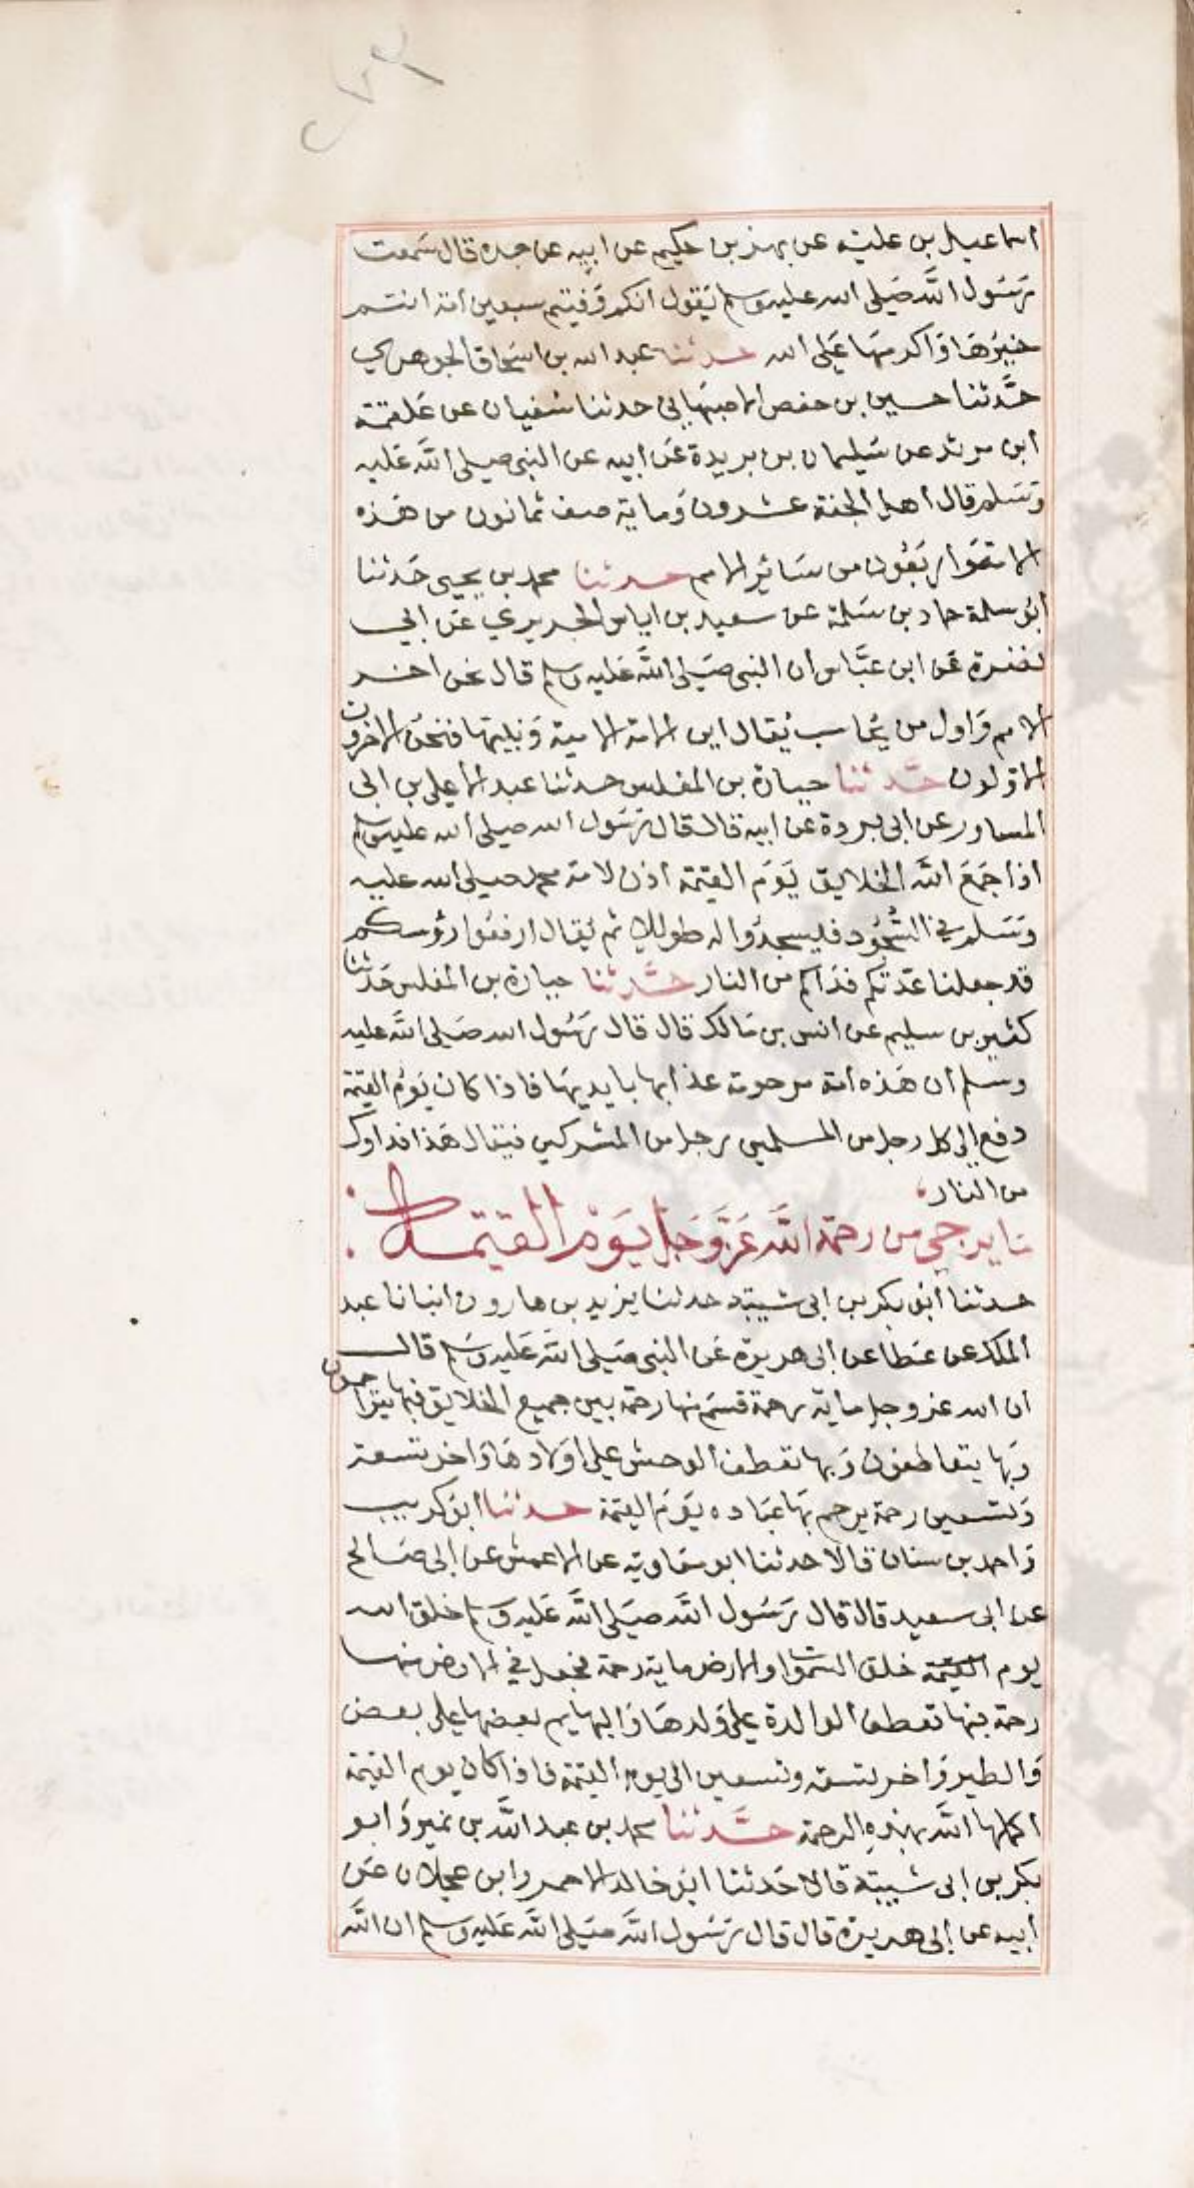 اسماعيل بن علية عن بهز بن حكيم عن ابيه عن جده قال سَمعت
رَسُول اللَّه صَلى الله عليه وسلم يَقول انكم وَفيتم سبعين امة انتم
خيرُهَا وَاكرمهَا عَلى الله حدثنا عبد الله بن اسحَاق الجوهري
حَدَّثنا حسين بن حفص الاصبهَاني حدثنا سُفيان عن عَلقمة
ابن مرثد عن سُليمان بن بريدة عَن ابيه عن النبي صلى اللَّه عَليه
وَسَلم قال اهل الجنة عشرون وَماية صف ثمانون من هَذه
الامة وَاربَعُون من سَائر الامم حدثنا محمد بن يحيى حَدثنا
ابُو سلمة حماد بن سَلمة عن سعيد بن اياس الجريري عَن ابي
نضرة عَن ابن عبَّاس ان النبي صَلى اللَّه عَليه وسلم قال نحن اخر
الامم وَاول من يُحَاسب يُقال اين الامة الامية وَنبيهَا فنحُن الاخرون
الاوّلون حدَّثنا جبارة بن المغلس حدثنا عبد الاعلى بن ابي
المساور عن ابي بردة عن ابيه قال قال رَسُول الله صلى الله عليه وسلم
اذا جَمَعَ اللَّه الخلايق يَوَم القيمة اذن لامة محمد صلى الله عليه
وَسَلم في السُّجُود فليسجدُوا له طويلا ثم يُقال ارفعُوا رؤسكم
قد جعلنا عدّتكم فدَاكم من النار حدَّثنا جبارة بن المغلس حَدثنا
كثير بن سليم عن انس بن مَالك قال قال رَسُول الله صَلى اللَّه عليه
وسلم ان هَذه امة مرحومة عذابها بايديهَا فاذا كان يَوُم القيمة
دفع الى كل رجل من المسلمين رجل من المشركين فيقال هَذا فداوك
من النار
مَا يرجى من رحمَة اللَّه عَزَّ وَجَل يَوَم القيمة
حدثنا ابُو بكر بن ابي شيبة حدثنا يزيد بن هارون انبانا عبد
الملك عن عَطا عن ابي هريرة عَن النبي صَلى اللَّه عَليه وَسَلم قال
ان الله عز وجل ماية رحمة قسَم منها رحمَة بين جميع الخلايق فبهَا يتراحمون
وَبهَا يتعاطفون وَبها تعطف الوحش على اوَلادهَا وَاخر تسعة
وَتسعين رحمة يرحم بهَا عبَاده يَوَم القيمة حدثنا ابوَ كريب
وَاحمد بن سنان قالا حدثنا ابو معَاوية عن الاعمش عن ابي صَالح
عن ابي سعيد قال قال رَسُول اللَّه صَلى اللَّه عَليه وَسلم خلق الله
يوم القيمة خلق السَّموات والارض ماية رحمة فجعل في الارض منها
رحمَة فبها تعطف الوالدة على وَلدهَا وَالبهايم بعضهَا على بعض
وَالطير وَاخر تسعة وتسعين الى يوم القيمة فاذا كان يوم القيمة
اكملها اللَّه بهَذِهِ الرحمة حدَّثنا محمد بن عبد اللَّه بن نمير وَابو
بكر بن ابي شيبة قالا حَدثنا ابوَ خالد الاحمر وابن عجلان عَن
ابيه عن ابي هريرة قال قال رَسُول اللَّه صَلى اللَّه عَليه وَسلم ان اللَّه